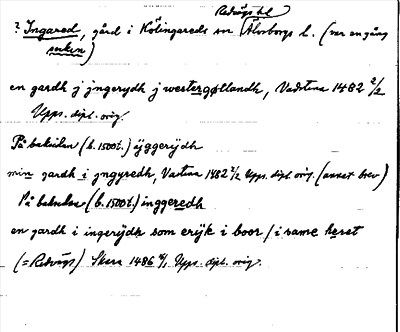 Redvägs hd
? Ingared, gård i Kölingareds sn (Älvsborgs l. (var en gång
socken)
en gardh j jngerydh j westergøllandh, Vadstena 1482 2/2
Upps. dipl. orig.
På baksidan (b. 1500 t.) ÿggerÿdh
min gardh i jngyredh, Vastena 1482 2/2 Upps. dipl. orig. (annat brev)
På baksidan (b. 1500 t.) inggeredh
en gardh i ingerÿdh som erÿk i boor / i same heret
(= Redvägs) Skara 1486 Upps. dipl. orig.